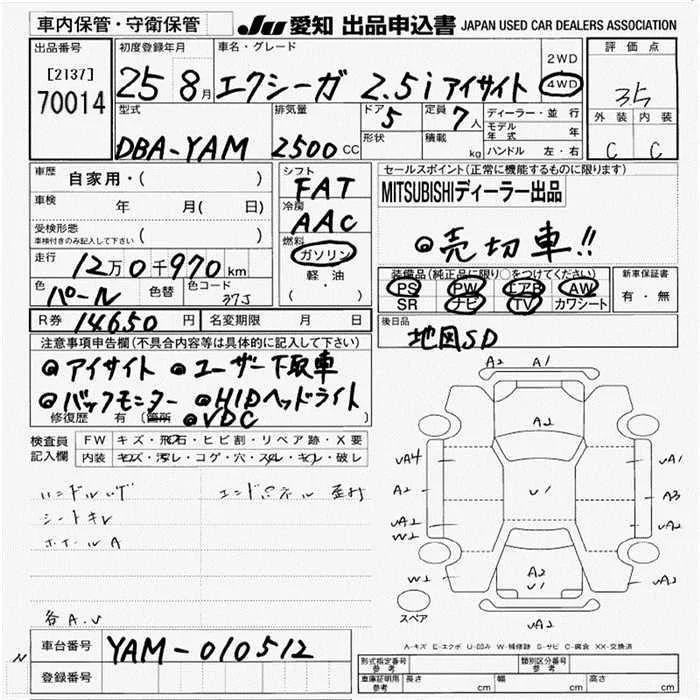 車内保管・守衛保管 JU 愛知 出品申込書 JAPAN USED CAR DEALERS ASSOCIATION
出品番号 初度登録年月 車名・グレード 評価点
[2137] 25 8月 エクシーガ 2.5i アイサイト 2WD 4WD 35
70014
型式 排気量 ドア 5 定員 7人 ディーラー・並行 外装 内装
形状 積載 kg モデル年式 年
DBA-YAM 2500 CC ハンドル 左・右 C C
車歴 自家用・( ) シフト FAT セールスポイント(正常に機能するものに限ります)
車検 年 月( 日) 冷房 AAC MITSUBISHIディーラー出品
受検形態 ( )
車検付きのみ記入して下さい
燃料 ガソリン 軽油 (・) ◎売切車!!
走行 12万0千970km
色 パール 色替 色コード 37J
装備品(純正品に限り○をつけてください) 新車保証書
PS PW エアB AW 有・無
SR ナビ TV カワシート
R券 14650円 名変期限 月 日 後日品 地図SD
注意事項申告欄(不具合内容等は具体的に記入して下さい)
◎アイサイト ◎ユーザー下取車
◎バックモニター ◎HIDヘッドライト
修復歴 有 (箇所 ◎VDC )
検査員記入欄 FW キズ・飛石・ヒビ割・リペア跡・X要
内装 キロズ・汚レ・コゲ・穴・スレ・キレ・破レ
シートキレ
ホイールA
各A.U
A2 A1
A2
UA4 UA1
A2 U1 A3
UA2 UA2
W2
W2 A2 UA2
U1
UA2
スペア
A-キズ E-エクボ U-凹み W-補修跡 S-サビ C-腐食 XX-交換済
車台番号 YAM-010512
登録番号
型式指定番号 参考 類別区分番号 参考
車庫証明用 参考 長さ cm 幅 cm 高さ cm